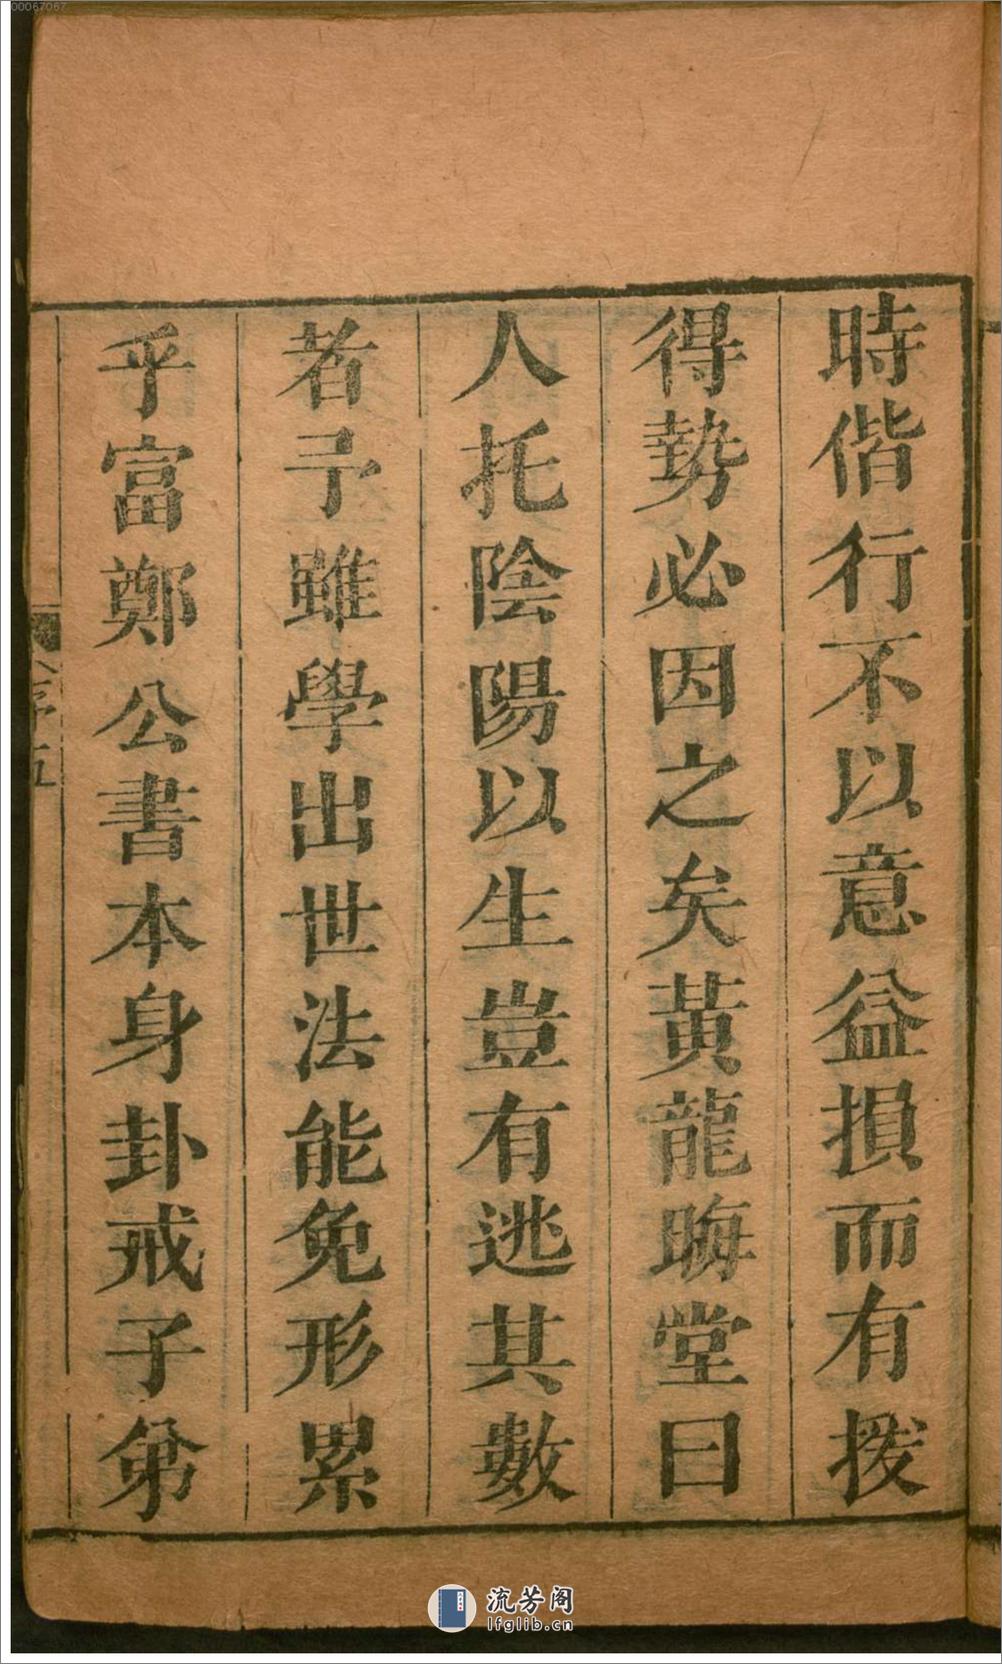 00067067
時偕行不以意益損而有撥
得勢必因之矣黃龍晦堂曰
人托陰陽以生豈有逃其數
者予雖學出世法能免形累
乎富鄭公書本身卦戒子弟
序五
流芳阁
lfglib.cn